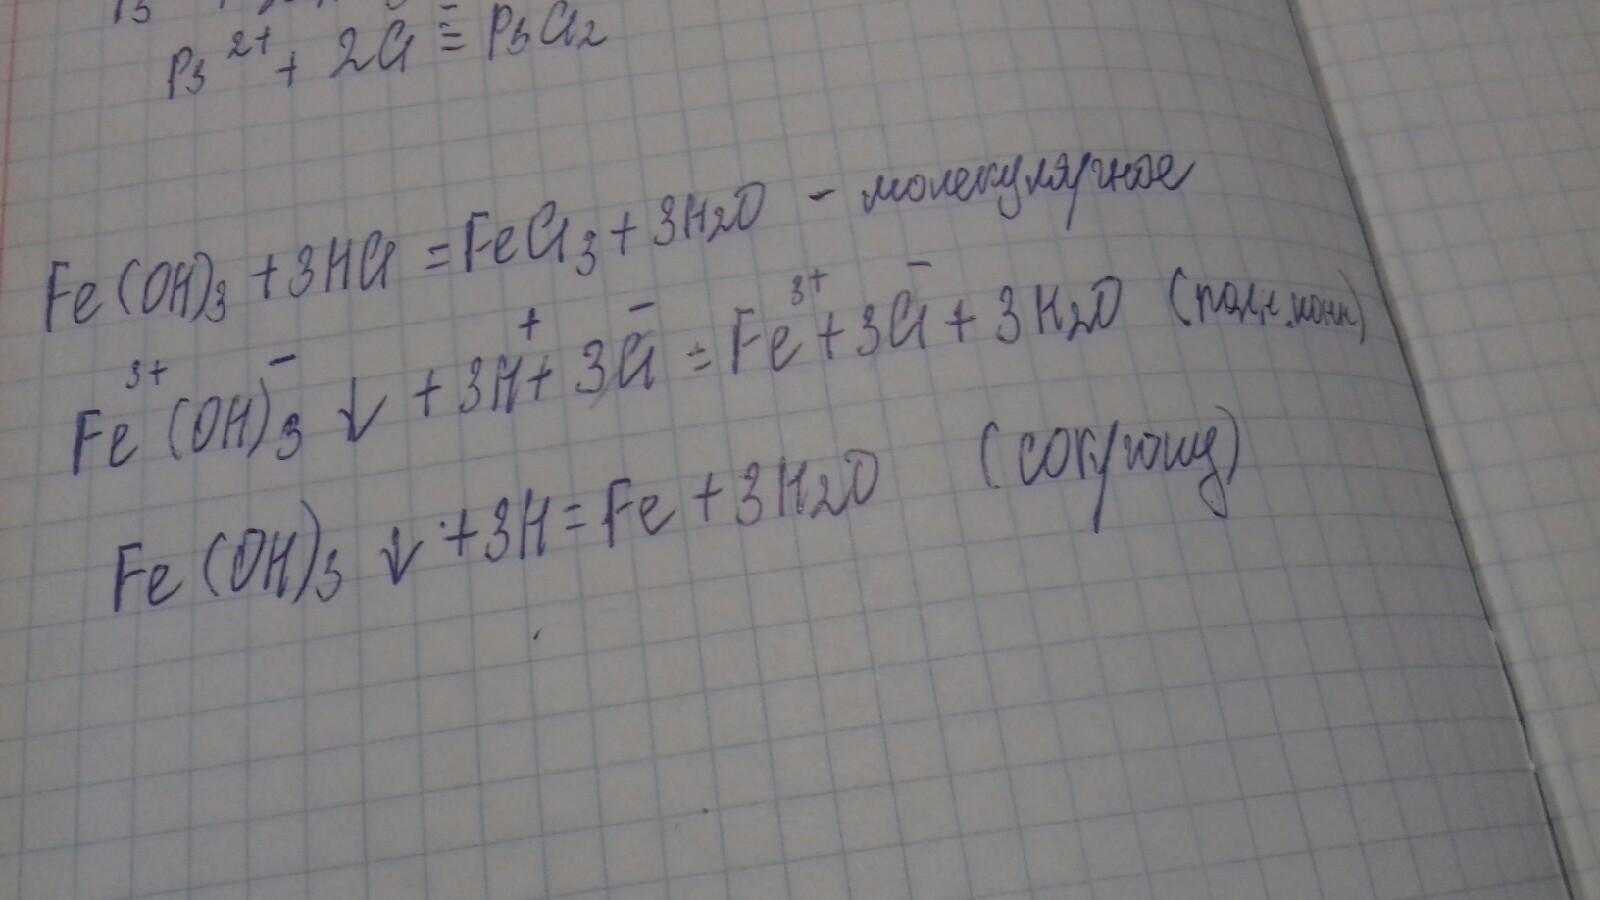 Pb²⁺ + 2Cl⁻ = PbCl₂
Fe(OH)₃ + 3HCl = FeCl₃ + 3H₂O - молекулярное
Fe³⁺(OH)⁻₃ ↓ + 3H⁺ + 3Cl⁻ = Fe³⁺ + 3Cl⁻ + 3H₂O (полн. ионн)
Fe(OH)₃ ↓ + 3H = Fe + 3H₂O